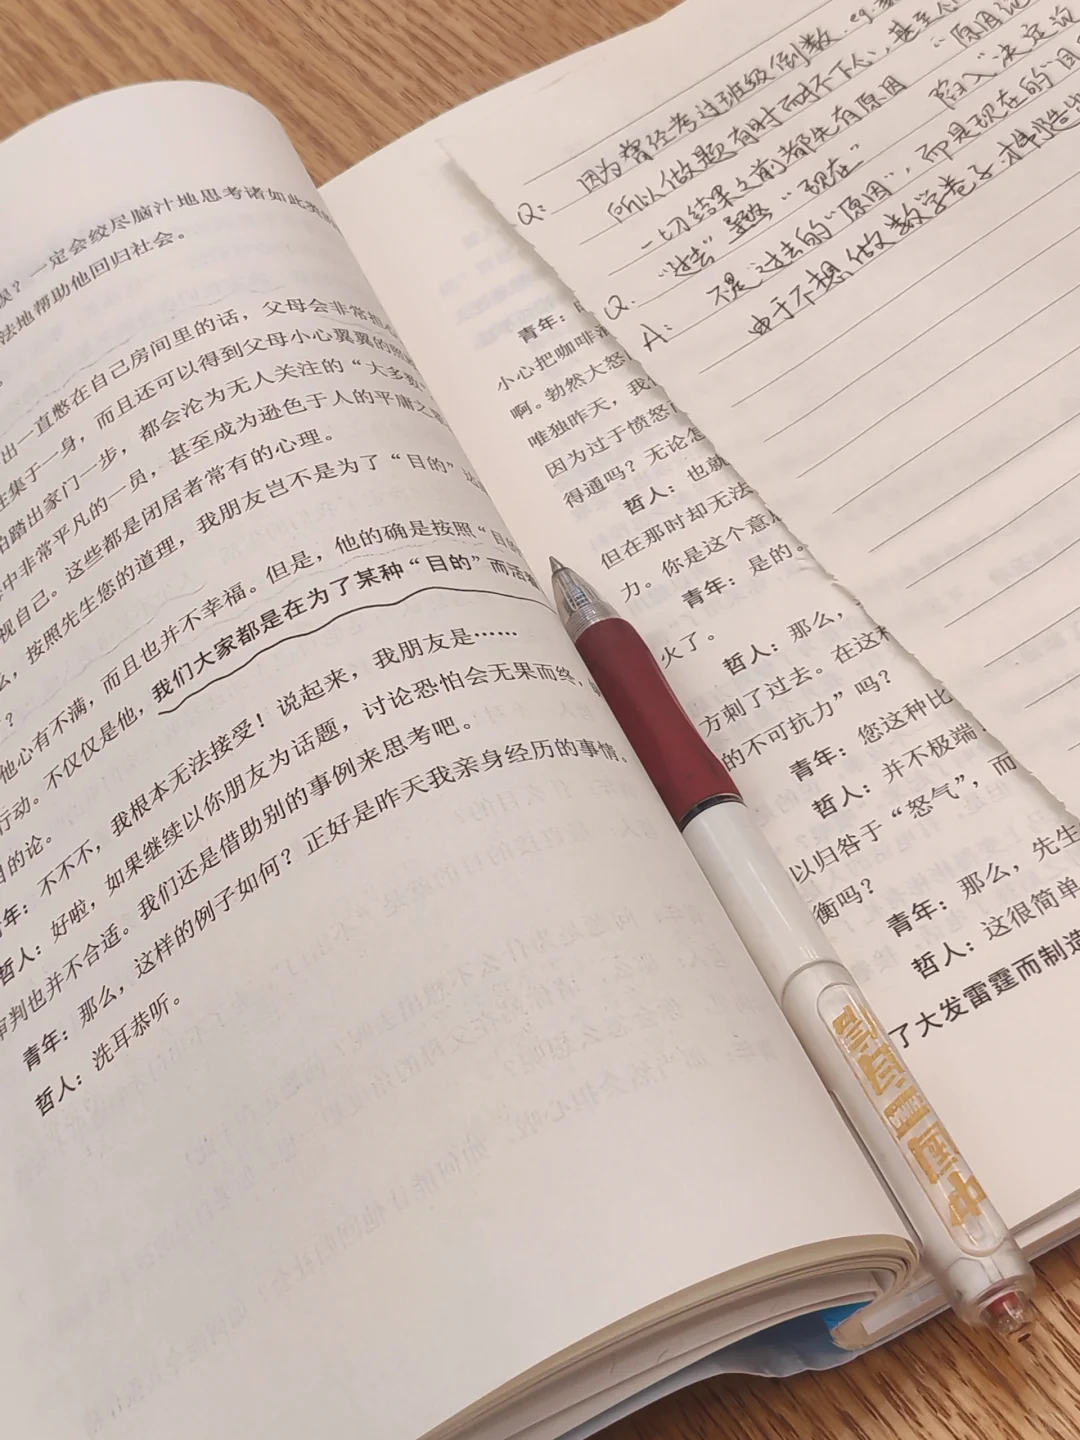 一定会绞尽脑汁地思考诸如此类
法地帮助他回归社会。
出一直憋在自己房间里的话，父母会非常担心
集于一身，而且还可以得到父母小心翼翼的照
踏出家门一步，都会沦为无人关注的“大多数”
中非常平凡的一员，甚至成为逊色于人的平庸之
视自己。这些都是闭居者常有的心理。
按照先生您的道理，我朋友岂不是为了“目的”
？
他心有不满，而且也并不幸福。但是，他的确是按照“目的
行动。不仅仅是他，我们大家都是在为了某种“目的”而活
目的论。
年：不不不，我根本无法接受！说起来，我朋友是……
哲人：好啦，如果继续以你朋友为话题，讨论恐怕会无果而终，
审判也并不合适。我们还是借助别的事例来思考吧。
青年：那么，这样的例子如何？正好是昨天我亲身经历的事情。
哲人：洗耳恭听。
因为曾经考过班级倒数.eg.
Q：所以做题有时耐不下心，甚至
一切结果之前都先有原因 “原因论
Q. “过去” “现在” 陷入“决定论
A：不是过去的“原因”，而是现在的“目
由于不想做数学卷子才制造出
青年：
小心把咖啡
啊。勃然大怒
唯独昨天，我
因为过于愤怒
得通吗？无论怎
哲人：也就
但在那时却无法
力。你是这个意
青年：是的。
火了。
哲人：那么，
方刺了过去。在这
的不可抗力”吗？
青年：您这种比
哲人：并不极端
以归咎于“怒气”，而
衡吗？
青年：那么，先生
哲人：这很简单
了大发雷霆而制造
中国